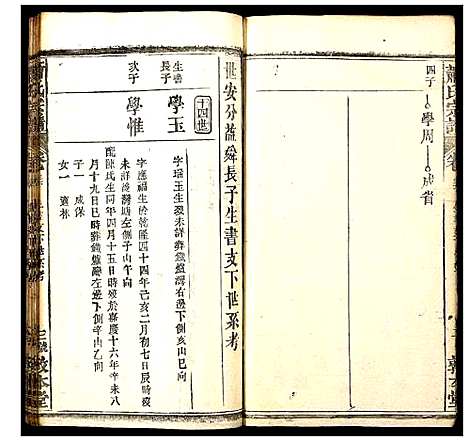 蕭氏宗譜
四子
學周——成省
世安分益舜長子生書支下世系考
十四世
生書長子
學玉
字瑞玉生歿未詳葬鐵爐灣右首側立
次子
學惟
字應福生於乾隆四十四年己亥二月初七日辰時歿
未詳葬灣塘左側子山午向
配陳氏生同年四月十五日時歿於嘉慶十六年辛未八
月十九日巳時葬鐵爐灣左邊下辛山乙向
子一 成保
女一 適林
敦本堂